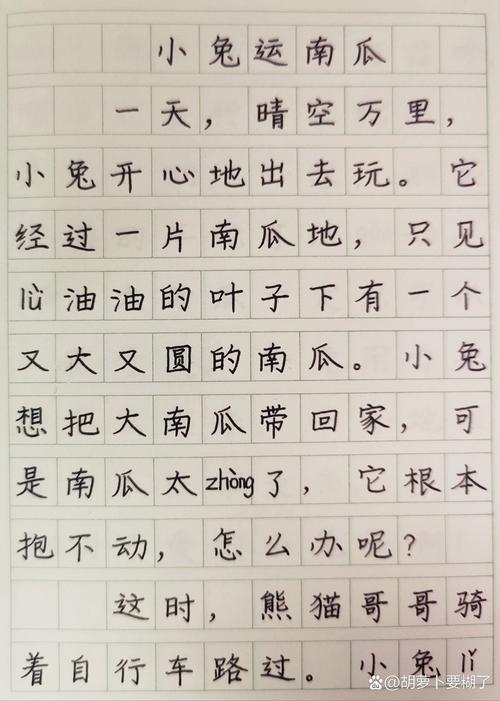 小兔运南瓜
一天，晴空万里，
小兔开心地出去玩。它
经过一片南瓜地，只见
lǜ油油的叶子下有一个
又大又圆的南瓜。小兔
想把大南瓜带回家，可
是南瓜太zhòng了，它根本
抱不动，怎么办呢？
这时，熊猫哥哥骑
着自行车路过。小兔lǐ
@胡萝卜要糊了